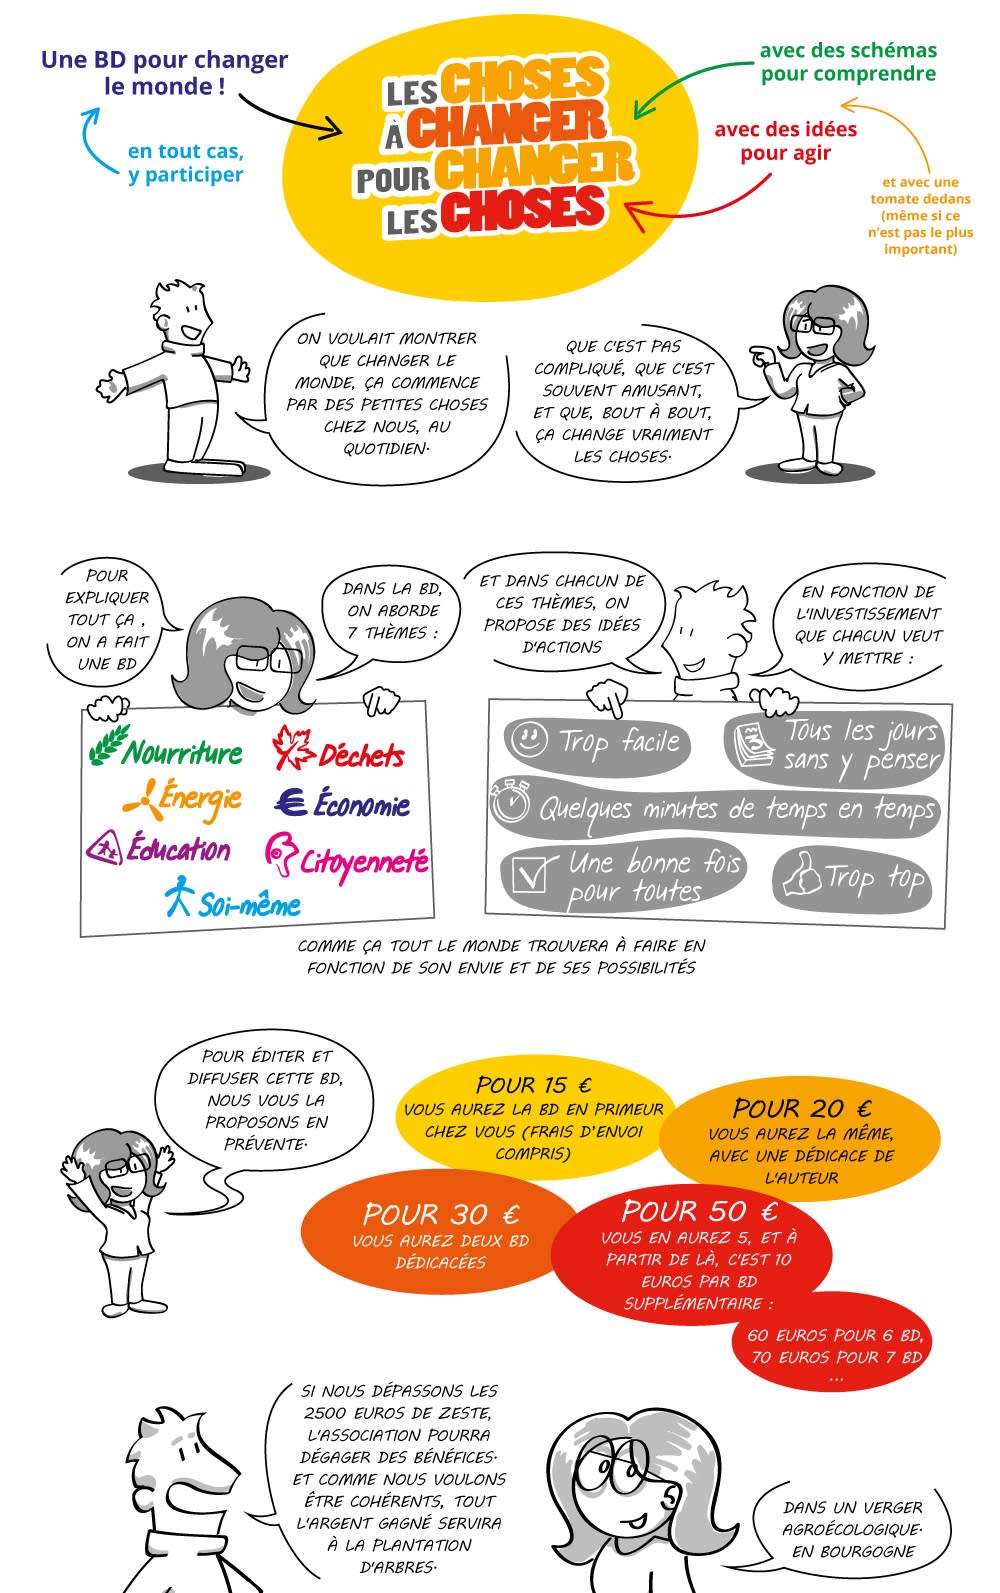 Une BD pour changer
le monde !
en tout cas,
y participer
LES CHOSES
À CHANGER
POUR CHANGER
LES CHOSES
avec des schémas
pour comprendre
avec des idées
pour agir
et avec une
tomate dedans
(même si ce
n'est pas le plus
important)
ON VOULAIT MONTRER
QUE CHANGER LE
MONDE, ÇA COMMENCE
PAR DES PETITES CHOSES
CHEZ NOUS, AU
QUOTIDIEN.
QUE C'EST PAS
COMPLIQUÉ, QUE C'EST
SOUVENT AMUSANT,
ET QUE, BOUT À BOUT,
ÇA CHANGE VRAIMENT
LES CHOSES.
POUR
EXPLIQUER
TOUT ÇA ,
ON A FAIT
UNE BD
DANS LA BD,
ON ABORDE
7 THÈMES :
ET DANS CHACUN DE
CES THÈMES, ON
PROPOSE DES IDÉES
D'ACTIONS
EN FONCTION DE
L'INVESTISSEMENT
QUE CHACUN VEUT
Y METTRE :
Nourriture
Déchets
Énergie
Économie
Éducation
Citoyenneté
Soi-même
Trop facile
Tous les jours
sans y penser
Quelques minutes de temps en temps
Une bonne fois
pour toutes
Trop top
COMME ÇA TOUT LE MONDE TROUVERA À FAIRE EN
FONCTION DE SON ENVIE ET DE SES POSSIBILITÉS
POUR ÉDITER ET
DIFFUSER CETTE BD,
NOUS VOUS LA
PROPOSONS EN
PRÉVENTE.
POUR 15 €
VOUS AUREZ LA BD EN PRIMEUR
CHEZ VOUS (FRAIS D'ENVOI
COMPRIS)
POUR 20 €
VOUS AUREZ LA MÊME,
AVEC UNE DÉDICACE DE
L'AUTEUR
POUR 30 €
VOUS AUREZ DEUX BD
DÉDICACÉES
POUR 50 €
VOUS EN AUREZ 5, ET À
PARTIR DE LÀ, C'EST 10
EUROS PAR BD
SUPPLÉMENTAIRE :
60 EUROS POUR 6 BD,
70 EUROS POUR 7 BD
...
SI NOUS DÉPASSONS LES
2500 EUROS DE ZESTE,
L'ASSOCIATION POURRA
DÉGAGER DES BÉNÉFICES.
ET COMME NOUS VOULONS
ÊTRE COHÉRENTS, TOUT
L'ARGENT GAGNÉ SERVIRA
À LA PLANTATION
D'ARBRES.
DANS UN VERGER
AGROÉCOLOGIQUE.
EN BOURGOGNE